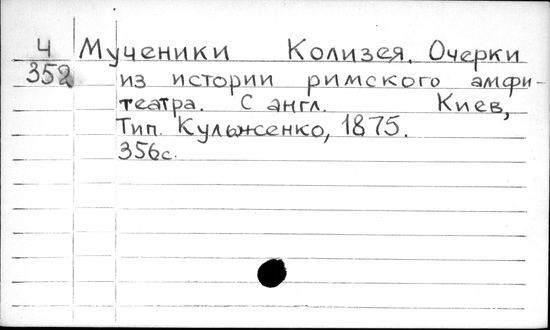 4 Мученики Колизея. Очерки
352 из истории римского амфи-
театра. С англ. Киев,
Тип. Кульженко, 1875.
356с.